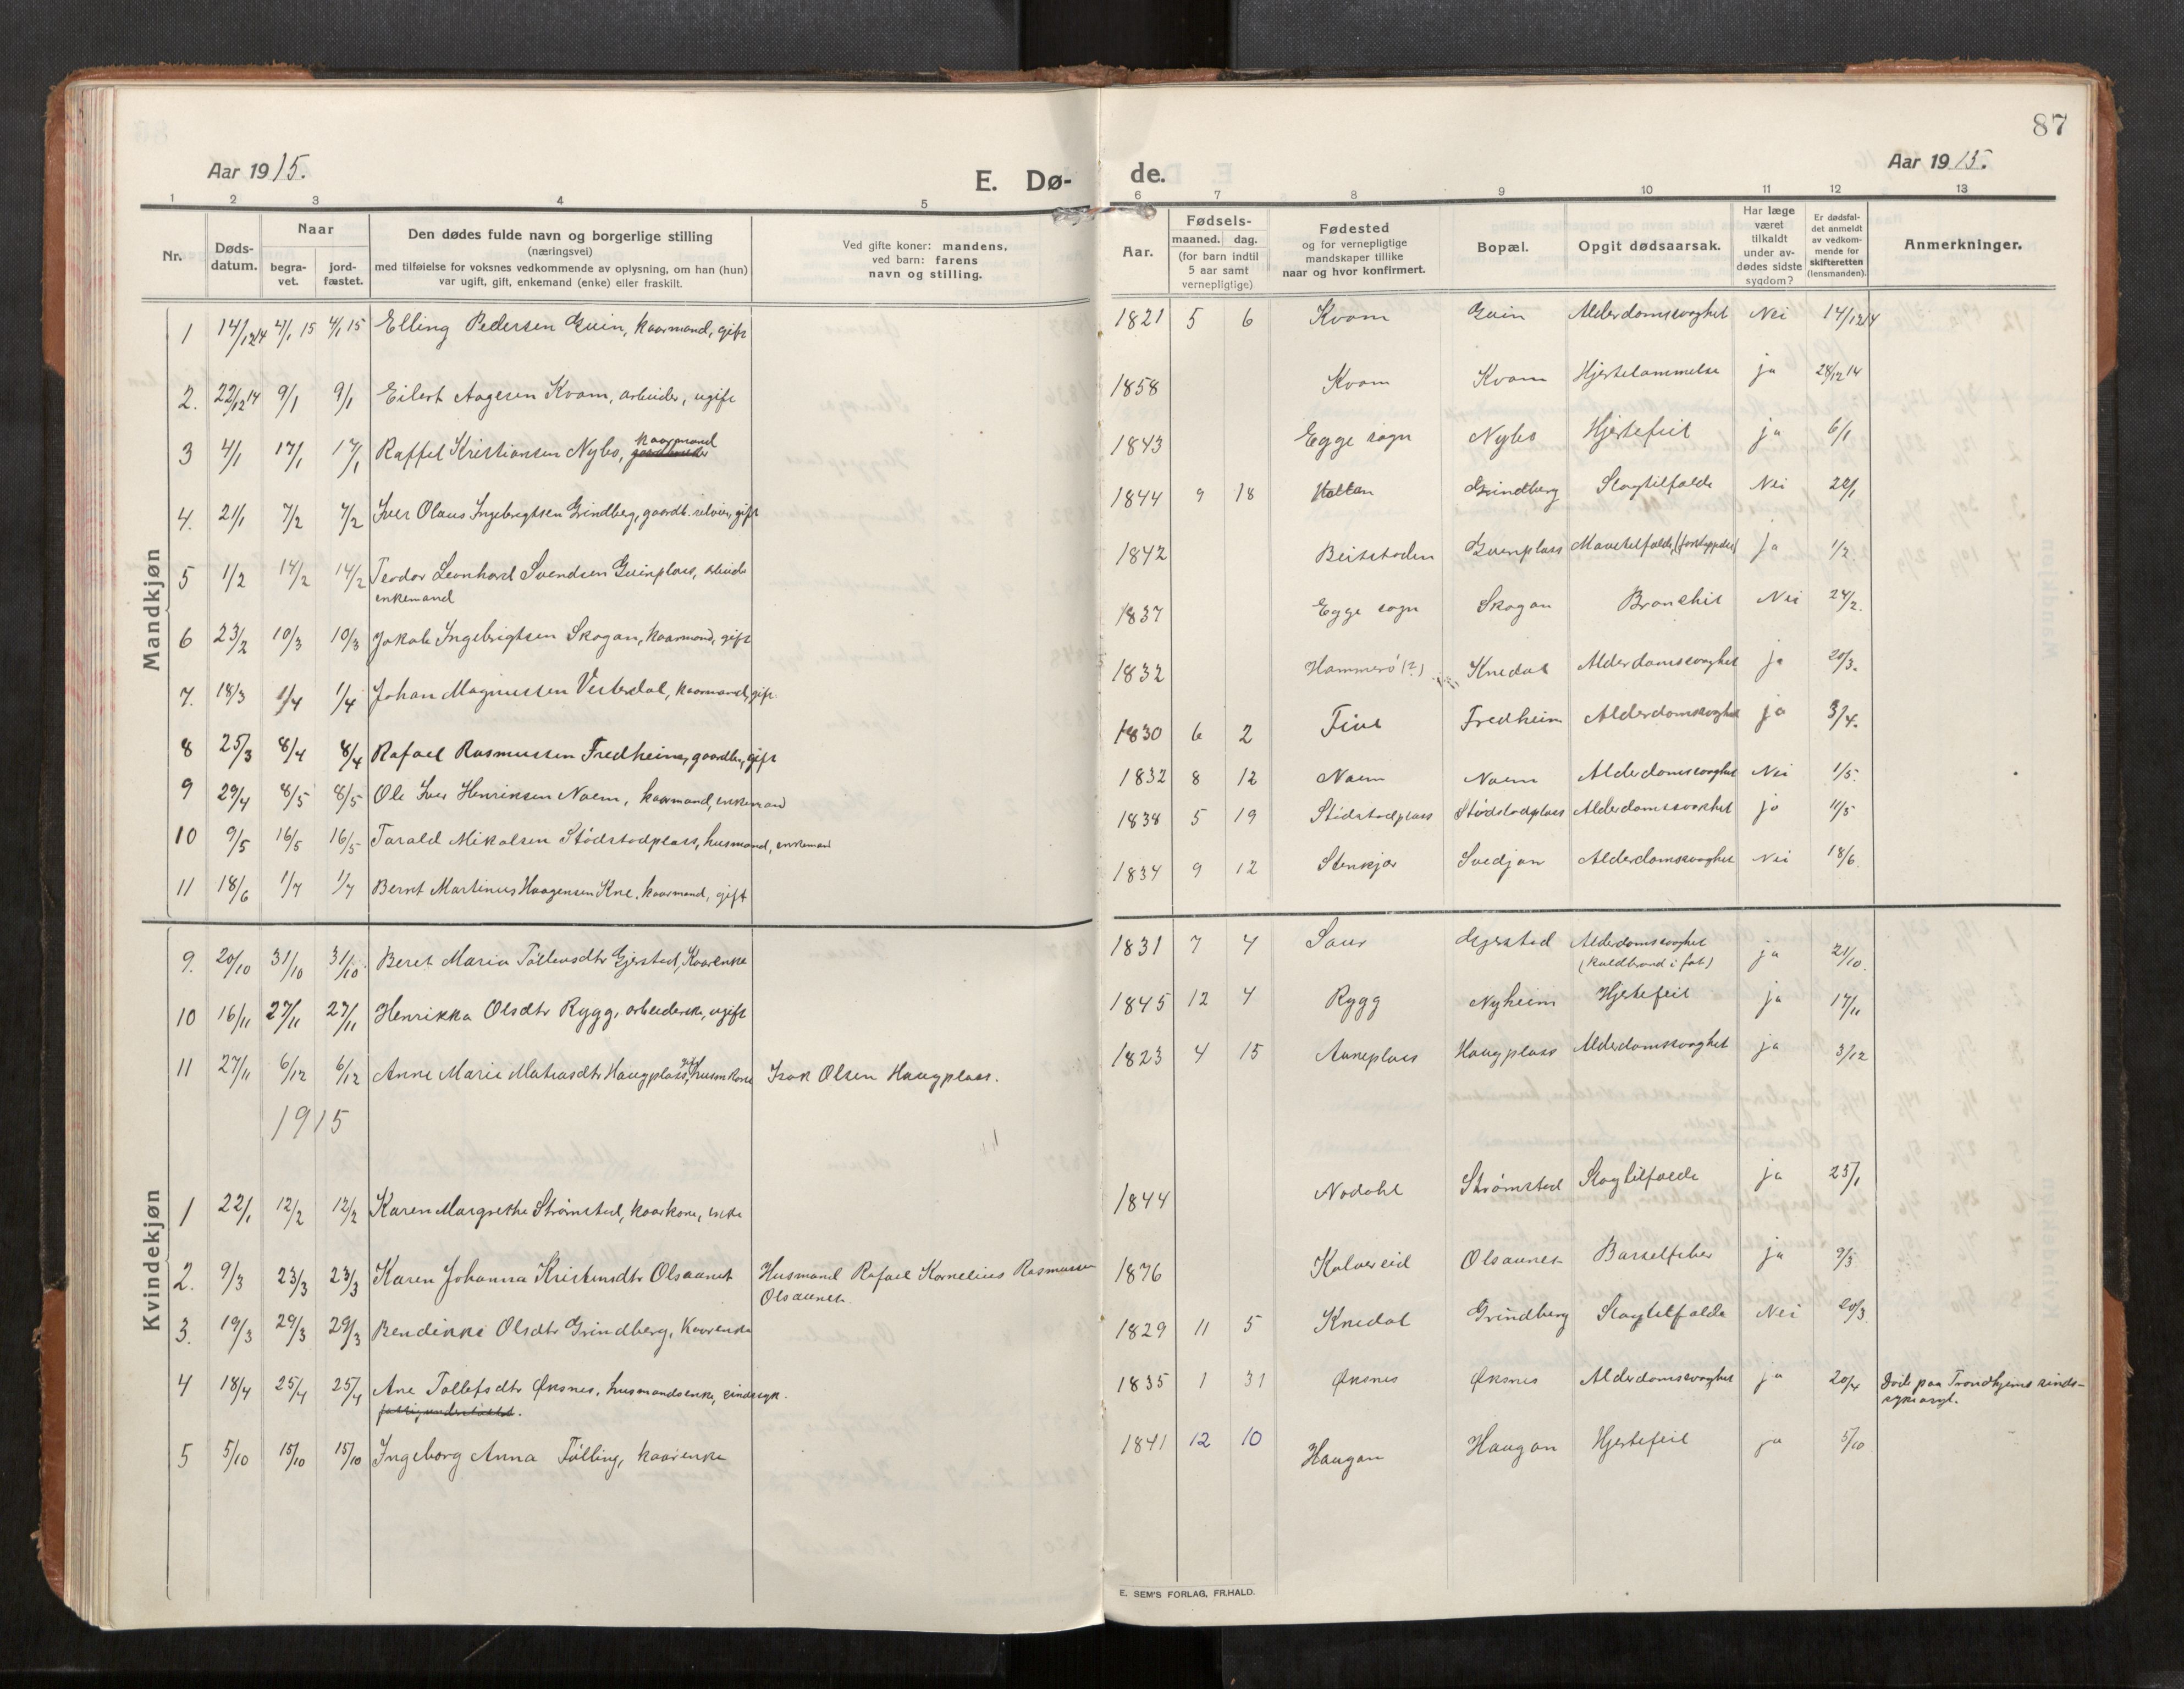 87
Aar 1915.
E. Dø-
de.
Aar 1915.
1 2 3 4 5 6 7 8 9 10 11 12 13
Nr.
Døds-
datum.
Naar
begra-
vet.
jord-
fæstet.
Den dødes fulde navn og borgerlige stilling
(næringsvei)
med tilføielse for voksnes vedkommende av oplysning, om han (hun)
var ugift, gift, enkemand (enke) eller fraskilt.
Ved gifte koner: mandens,
ved barn: farens
navn og stilling.
Aar.
Fødsels-
maaned. dag.
(for barn indtil
5 aar samt
vernepligtige)
Fødested
og for vernepligtige
mandskaper tillike
naar og hvor konfirmert.
Bopæl.
Opgit dødsaarsak.
Har læge
været
tilkaldt
under av-
dødes sidste
sygdom?
Er dødsfal-
det anmeldt
av vedkom-
mende for
skifteretten
(lensmanden).
Anmerkninger.
Mandkjøn
1 14/12 14 4/1 15 4/1 15 Elling Pedersen Guin, kaarmand, gift 1821 5 6 Kvam Guin Alderdomssvaghet Nei 14/12 14
2. 22/12 14 9/1 9/1 Eilert Aagesen Kvam, arbeider, ugift 1858 Kvam Kvam Hjertelammelse ja 28/12 14
3 4/1 17/1 17/1 Raffel Kristiansen Nybo, kaarmand 1843 Egge sogn Nybo Hjertefeil ja 6/1
4. 21/1 7/2 7/2 Iver Olaus Ingebrigtsen Grindberg, gaardb. selveier, gift 1844 9 18 Holtan Grindberg Slagtilfælde Nei 22/1
5 1/2 14/2 14/2 Teodor Leonhard Svendsen Guinplass, arbeider
enkemand 1842 Beitstaden Guinplass Mavetilfælde, (forstoppelse) ja 1/2
6 23/2 10/3 10/3 Jakob Ingebrigtsen Skogan, kaarmand, gift 1837 Egge sogn Skogan Bronchit Nei 24/2.
7. 18/3 1/4 1/4 Johan Magnussen Vesterdal, kaarmand, gift. 1832 Hammerö (?) Knedal Alderdomssvaghet ja 20/3.
8 25/3 8/4 8/4 Rafael Rasmussen Fredheim, gaardbr., gift 1830 6 2 Five Fredheim Alderdomssvaghet ja 3/4.
9 29/4 8/5 8/5 Ole Iver Henriksen Naem, kaarmand, enkemand 1832 8 12 Naem Naem Alderdomssvaghet Nei 1/5.
10 9/5 16/5 16/5 Tarald Mikalsen Stödstadplass, husmand, enkemand 1838 5 19 Stödstadplass Stödstadplass Alderdomssvakhet ja 11/5
11 18/6 1/7 1/7 Bernt Martinus Haagensen Kne, kaarmand, gift 1834 9 12 Stenkjær Svedjan Alderdomssvaghet Nei 18/6.
Kvindekjøn
9. 20/10 31/10 31/10. Beret Maria Tollevsdtr Gjerstad, Kaarenke 1831 7 4 Saur Gjerstad Alderdomssvaghet
(Koldbrand i fot) ja 21/10.
10 16/11 27/11 27/11 Henrikka Olsdtr Rygg, arbeiderske, ugift 1845 12 4 Rygg Nyheim Hjertefeil ja 17/11
11 27/11 6/12 6/12 Anne Marie Matiasdtr Haugplass, gift husmkone Isak Olsen Haugplass. 1823 4 15 Auneplass Haugplass Alderdomssvaghet ja 3/12
1915
1 22/1 12/2 12/2 Karen Margrethe Strømstad, kaarkone, enke 1844 Nødahl Strømstad Slagtilfælde ja 25/1
2. 9/3 23/3 23/3 Karen Johanna Kristensdtr Olsaunet Husmand Rafael Kornelius Rasmussen
Olsaunet. 1876 Kolvereid Olsaunet Barselfeber ja 9/3
3. 19/3 29/3 29/3 Bendikke Olsdtr Grindberg, Kaarenke 1829 11 5 Knedal Grindberg Slagtilfælde Nei 20/3.
4 18/4 25/4 25/4 Ane Tollefsdtr Øksnes, husmandsenke, sindssyk.
fattigunderstøttet. 1835 1 31 Øksnes Øksnes Alderdomssvaghet ja 20/4 Døde paa Trondhjems sinds-
sykeasyl.
5 5/10 15/10 15/10 Ingeborg Anna Fölling, kaarenke 1841 12 10 Haugan Haugan Hjertefeil ja 5/10
E. SEM'S FORLAG, FR.HALD.